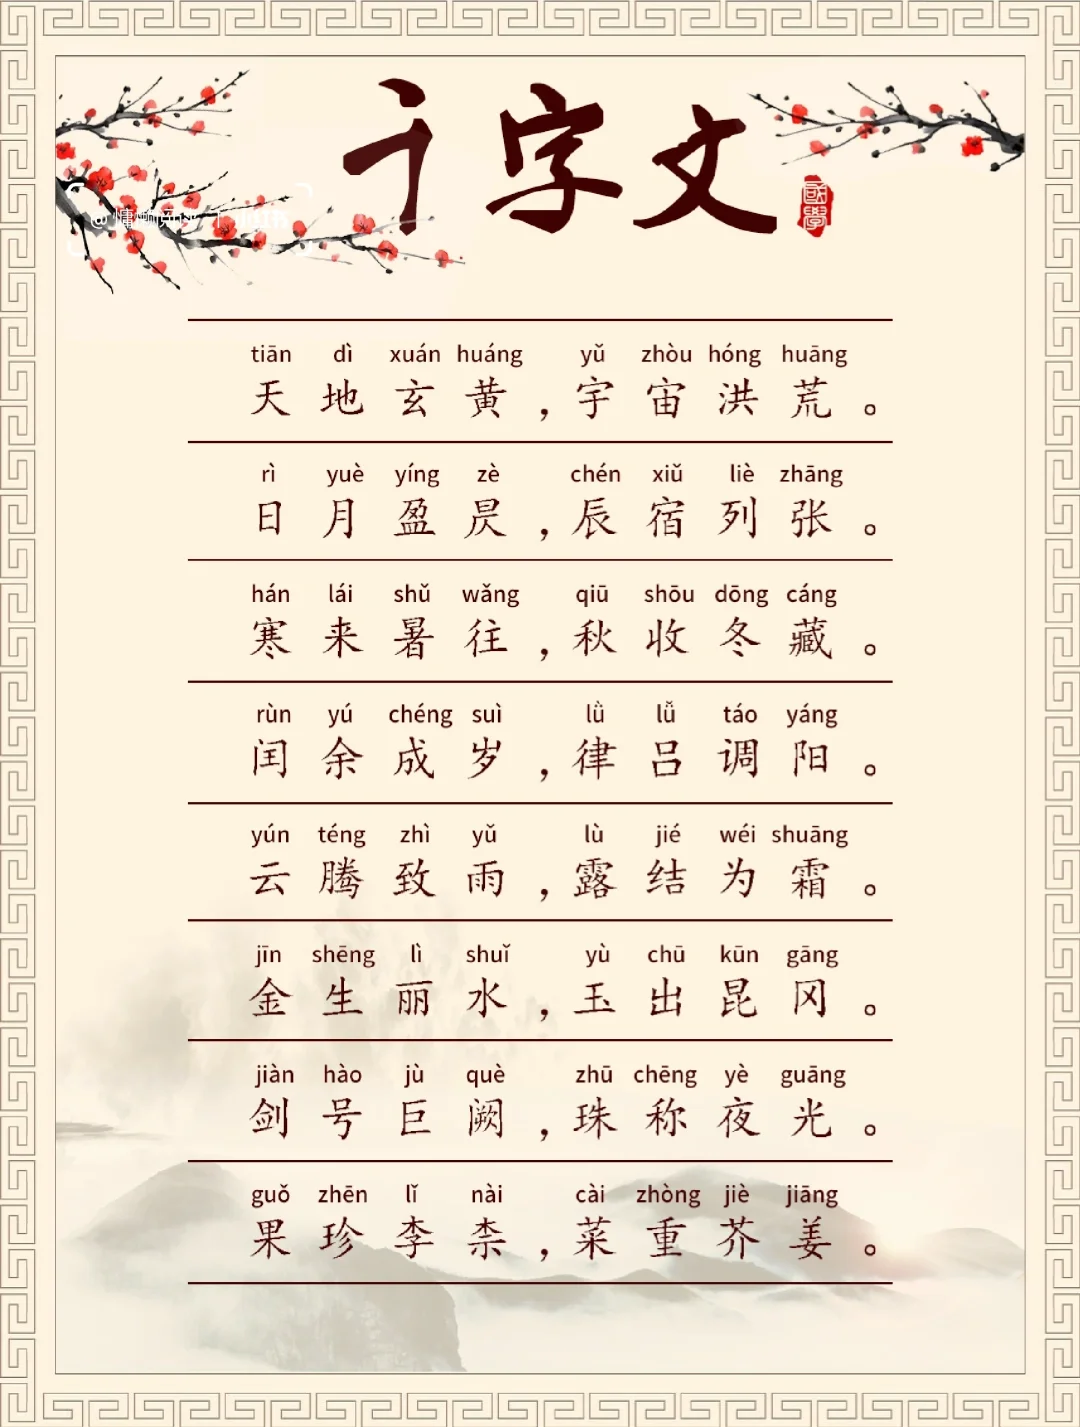 千字文
國學
tiān dì xuán huáng yǔ zhòu hóng huāng
天地玄黄，宇宙洪荒。
rì yuè yíng zè chén xiǔ liè zhāng
日月盈昃，辰宿列张。
hán lái shǔ wǎng qiū shōu dōng cáng
寒来暑往，秋收冬藏。
rùn yú chéng suì lǜ lǚ táo yáng
闰余成岁，律吕调阳。
yún téng zhì yǔ lù jié wéi shuāng
云腾致雨，露结为霜。
jīn shēng lì shuǐ yù chū kūn gāng
金生丽水，玉出昆冈。
jiàn hào jù què zhū chēng yè guāng
剑号巨阙，珠称夜光。
guǒ zhēn lǐ nài cài zhòng jiè jiāng
果珍李柰，菜重芥姜。